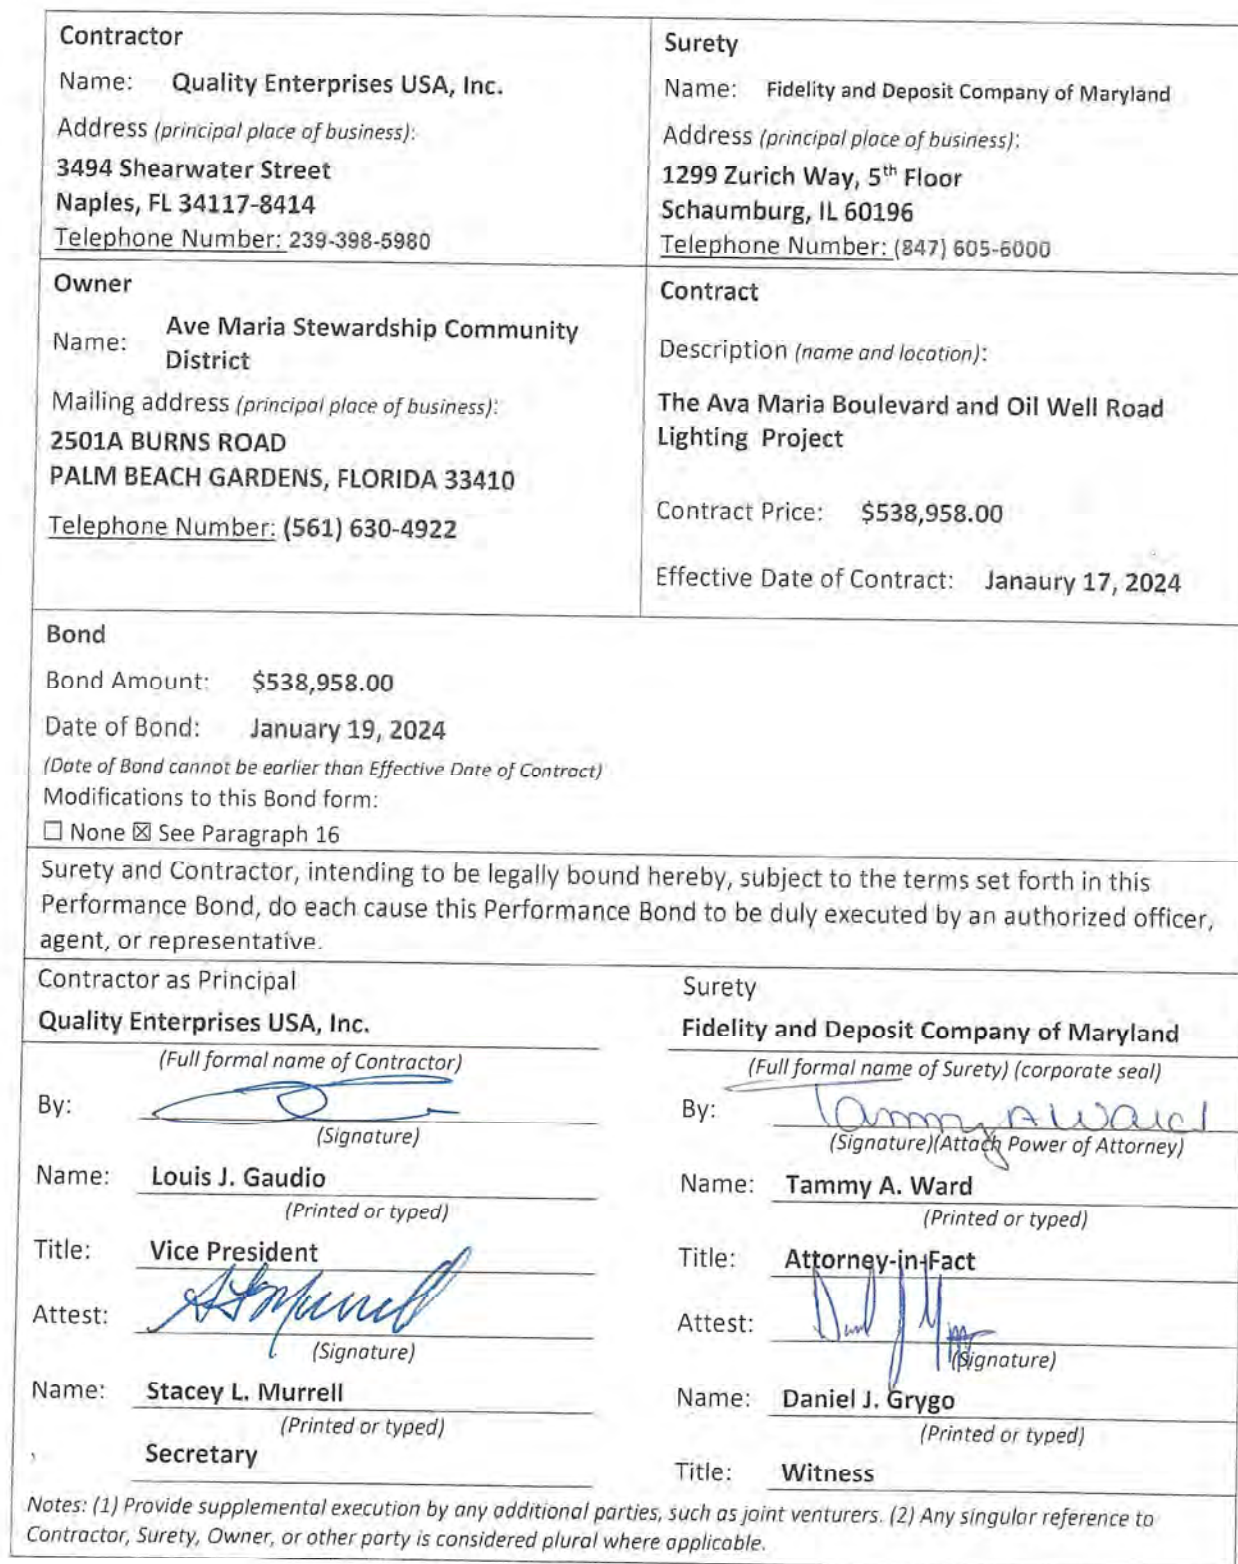 Contractor
Name: Quality Enterprises USA, Inc.
Address (principal place of business):
3494 Shearwater Street
Naples, FL 34117-8414
Telephone Number: 239-398-5980
Surety
Name: Fidelity and Deposit Company of Maryland
Address (principal place of business):
1299 Zurich Way, 5th Floor
Schaumburg, IL 60196
Telephone Number: (847) 605-6000
Owner
Name: Ave Maria Stewardship Community
District
Mailing address (principal place of business):
2501A BURNS ROAD
PALM BEACH GARDENS, FLORIDA 33410
Telephone Number: (561) 630-4922
Contract
Description (name and location):
The Ava Maria Boulevard and Oil Well Road
Lighting Project
Contract Price: $538,958.00
Effective Date of Contract: Janaury 17, 2024
Bond
Bond Amount: $538,958.00
Date of Bond: January 19, 2024
(Date of Bond cannot be earlier than Effective Date of Contract)
Modifications to this Bond form:
☐ None ☒ See Paragraph 16
Surety and Contractor, intending to be legally bound hereby, subject to the terms set forth in this
Performance Bond, do each cause this Performance Bond to be duly executed by an authorized officer,
agent, or representative.
Contractor as Principal
Quality Enterprises USA, Inc.
(Full formal name of Contractor)
By:
(Signature)
Name: Louis J. Gaudio
(Printed or typed)
Title: Vice President
Attest:
(Signature)
Name: Stacey L. Murrell
(Printed or typed)
Secretary
Surety
Fidelity and Deposit Company of Maryland
(Full formal name of Surety) (corporate seal)
By: Tammy A Ward
(Signature)(Attach Power of Attorney)
Name: Tammy A. Ward
(Printed or typed)
Title: Attorney-in-Fact
Attest:
(Signature)
Name: Daniel J. Grygo
(Printed or typed)
Title: Witness
Notes: (1) Provide supplemental execution by any additional parties, such as joint venturers. (2) Any singular reference to
Contractor, Surety, Owner, or other party is considered plural where applicable.